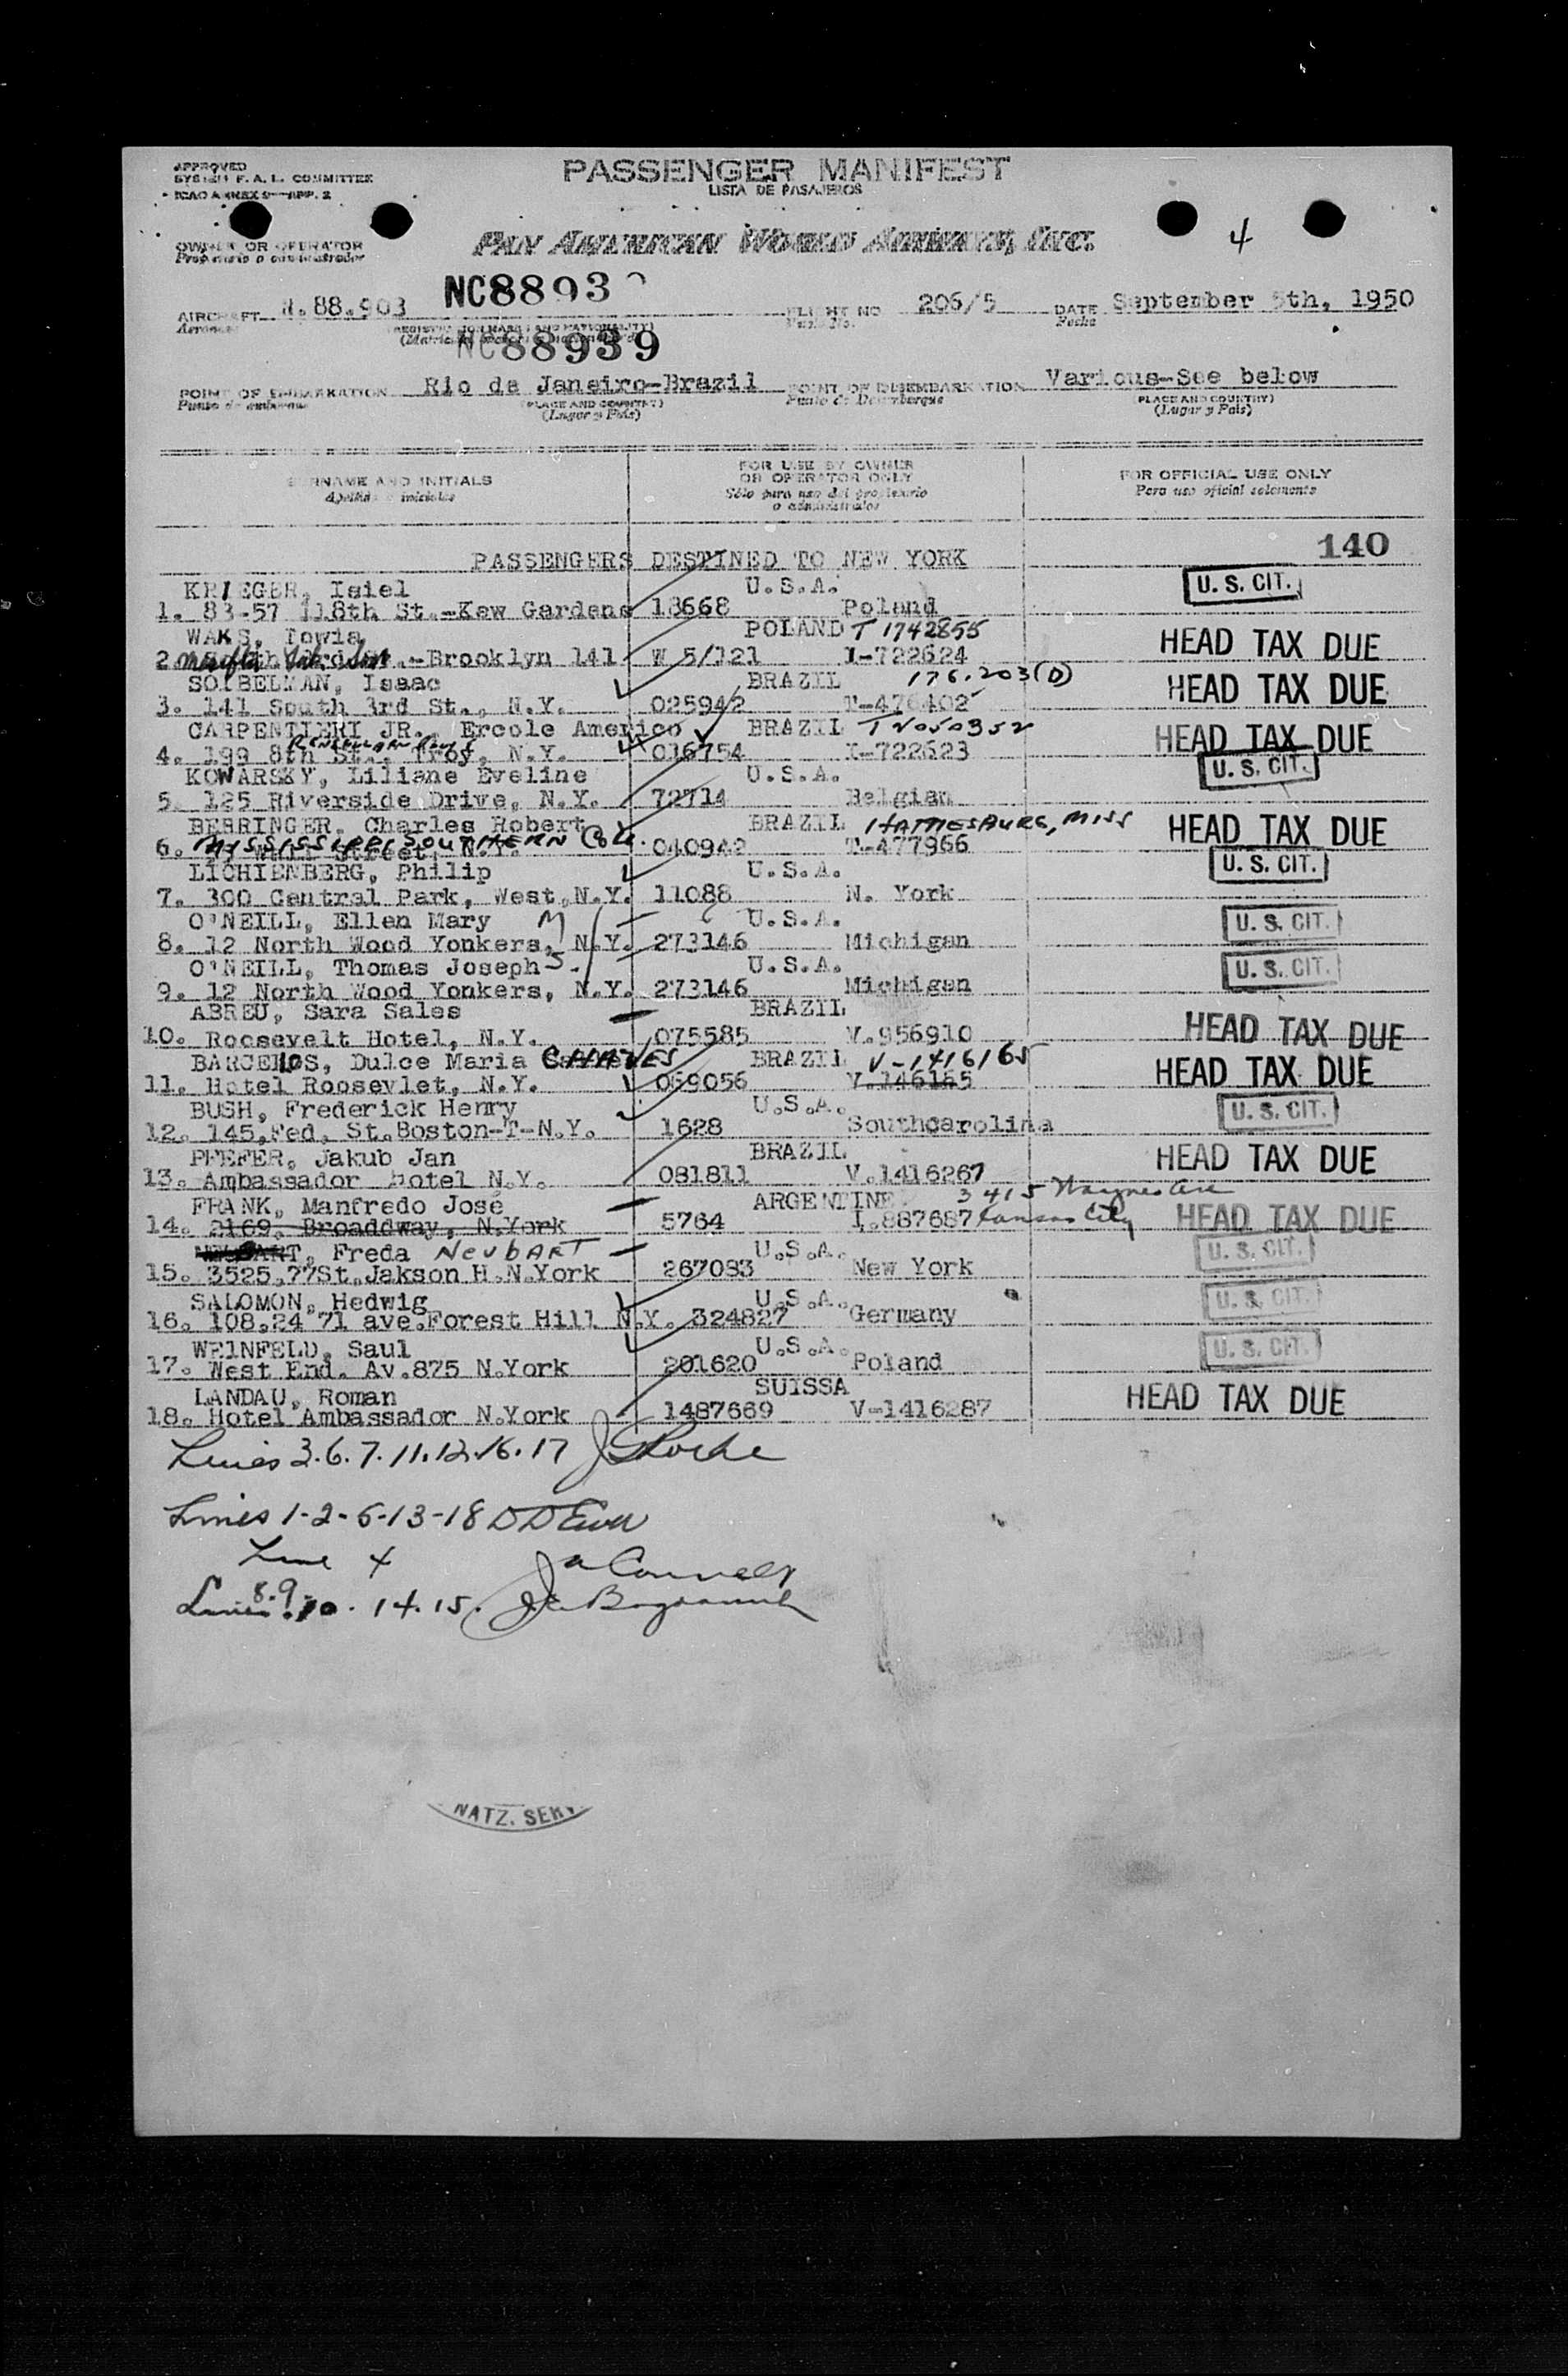 APPROVED
SYSTEM F. A. L. COMMITTEE
ICAO ANNEX 9—APP. 2
PASSENGER MANIFEST
LISTA DE PASAJEROS
OWNER OR OPERATOR
Propietario o administrador
PAN AMERICAN WORLD AIRWAYS, INC.
4
NC8893
AIRCRAFT N.88.903 FLIGHT NO 206/5 DATE September 5th, 1950
Aeronave Vuelo No. Fecha
(REGISTRATION MARKS AND NATIONALITY)
NC88939
POINT OF EMBARKATION Rio de Janeiro-Brazil POINT OF DISEMBARKATION Various-See below
Punto de embarque (PLACE AND COUNTRY) Punto de Desembarque (PLACE AND COUNTRY)
(Lugar y País) (Lugar y País)
SURNAME AND INITIALS FOR USE BY OWNER OR OPERATOR ONLY FOR OFFICIAL USE ONLY
Apellido e iniciales Sólo para uso del propietario o administrador Para uso oficial solamente
PASSENGERS DESTINED TO NEW YORK 140
KRIEGER, Isiel U.S.A. U. S. CIT.
1. 83-57 118th St.-Kew Gardens 18668 Poland
WAKS, Towia POLAND T 1742855
2. -Brooklyn 141 W 5/121 I-722624 HEAD TAX DUE
SOIBELMAN, Isaac BRAZIL 176.203(D)
3. 141 South 3rd St., N.Y. 025942 T-476402 HEAD TAX DUE
CARPENTIERI JR., Ercole Americo BRAZIL
4. 199 8th St., Troy, N.Y. 016754 I-722623 HEAD TAX DUE
KOWARSKY, Liliane Eveline U.S.A. U. S. CIT.
5. 125 Riverside Drive, N.Y. 72714 Belgian
BEHRINGER, Charles Robert BRAZIL HATTIESBURG, MISS
6. MISSISSIPPI SOUTHERN COLL. 040942 T-477966 HEAD TAX DUE
LICHIENBERG, Philip U.S.A. U. S. CIT.
7. 300 Central Park, West,N.Y. 11088 N. York
O'NEILL, Ellen Mary M U.S.A. U. S. CIT.
8. 12 North Wood Yonkers, N.Y. 273146 Michigan
O'NEILL, Thomas Joseph S. U.S.A. U. S. CIT.
9. 12 North Wood Yonkers, N.Y. 273146 Michigan
ABREU, Sara Sales BRAZIL
10. Roosevelt Hotel, N.Y. 075585 V.956910 HEAD TAX DUE
BARCELOS, Dulce Maria CHAVES BRAZIL V-1416165
11. Hotel Roosevlet, N.Y. 069056 V-146165 HEAD TAX DUE
BUSH, Frederick Henry U.S.A. U. S. CIT.
12. 145,Fed, St.Boston-T-N.Y. 1628 Southcarolina
PFEFER, Jakub Jan BRAZIL HEAD TAX DUE
13. Ambassador hotel N.Y. 081811 V.1416267
FRANK, Manfredo José ARGENTINE 3415 Waynes ave
14. 2169, Broaddway, N.York 5764 I.887687 Kansas City HEAD TAX DUE
Freda NEUBART U.S.A. U. S. CIT.
15. 3525,77St.Jakson H.N.York 267083 New York
SALOMON, Hedwig U.S.A. U. S. CIT.
16. 108,24 71 ave.Forest Hill N.Y. 324827 Germany
WEINFELD, Saul U.S.A. U. S. CIT.
17. West End. Av.875 N.York 201620 Poland
LANDAU, Roman SUISSA
18. Hotel Ambassador N.York 1487669 V-1416287 HEAD TAX DUE
Lines 3.6.7.11.12.16.17
Lines 1-2-5-13-18
Line 4
Lines 8.9.10.14.15.
NATZ. SERV